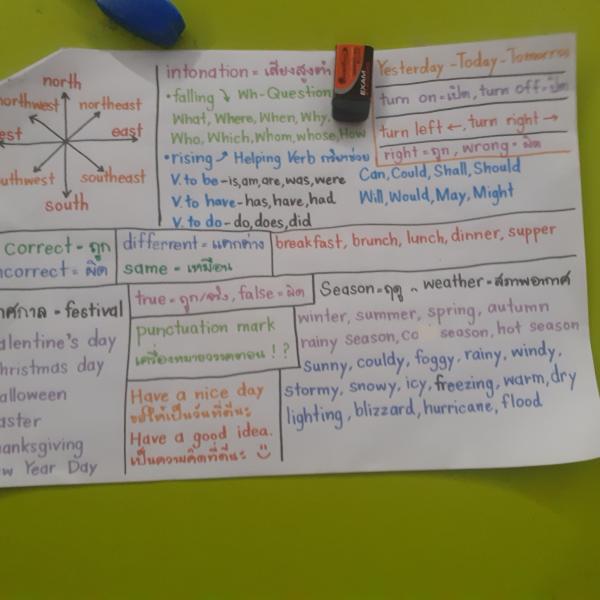 north
northwest
northeast
east
southeast
south
intonation = เสียงสูงต่ำ
•falling ↘ Wh-Question
What, Where, When, Why,
Who, Which, Whom, whose, How
•rising ↗ Helping Verb กริยาช่วย
V. to be - is, am, are, was, were
V. to have - has, have, had
V. to do - do, does, did
EXAM
Yesterday - Today - Tomorrow
turn on = เปิด, turn off = ปิด
turn left ←, turn right →
right = ถูก, wrong = ผิด
Can, Could, Shall, Should
Will, Would, May, Might
correct = ถูก
incorrect = ผิด
differrent = แตกต่าง
same = เหมือน
breakfast, brunch, lunch, dinner, supper
festival
alentine's day
hristmas day
alloween
aster
hanksgiving
w Year Day
true = ถูก/จริง, false = ผิด
punctuation mark
เครื่องหมายวรรคตอน ! ?
Have a nice day
ขอให้เป็นวันที่ดีนะ
Have a good idea.
เป็นความคิดที่ดีนะ
Season = ฤดู ~ weather = สภาพอากาศ
winter, summer, spring, autumn
rainy season, co season, hot season
sunny, couldy, foggy, rainy, windy,
stormy, snowy, icy, freezing, warm, dry
lighting, blizzard, hurricane, flood